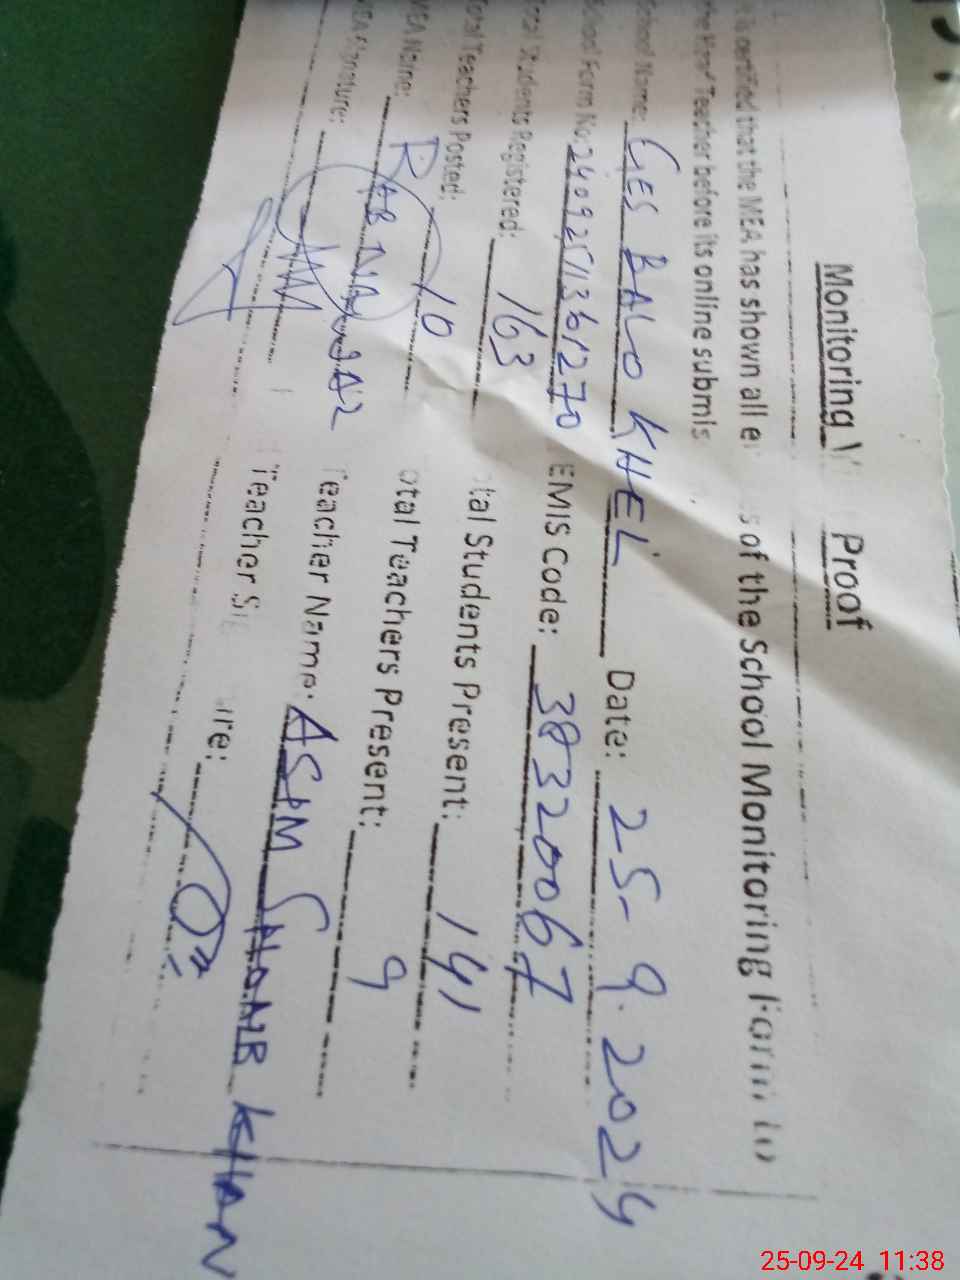 Monitoring Proof
is certified that the MEA has shown all of the School Monitoring Form to
the Head Teacher before its online submis
School Name: GES BALO KHEL Date: 25-9.2024
School Form No: EMIS Code: 38320067
Total Students Registered: 163 Total Students Present: 141
Total Teachers Posted: 10 Total Teachers Present: 9
MEA Name: Teacher Name: ASIM SHOAIB KHAN
MEA Signature: Teacher
25-09-24 11:38